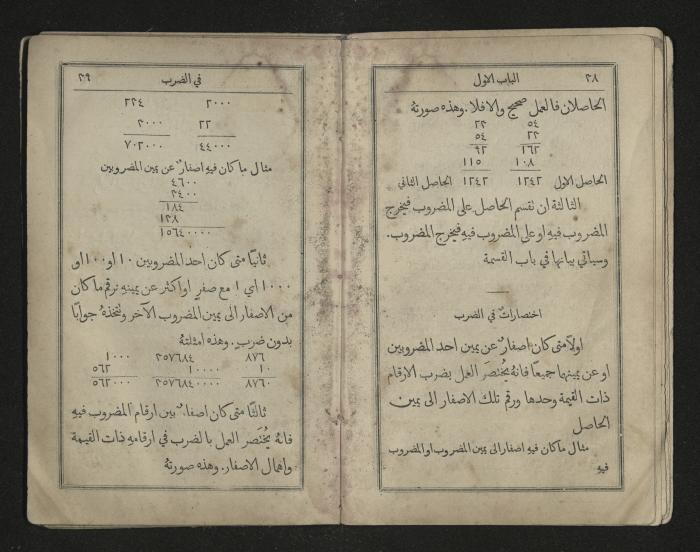 ٢٨ الباب الاول
الحاصلان فالعمل صحيح والا فلا. وهذه صورتهُ
٥٤ ٢٣
٢٣ ٥٤
١٦٢ ٩٢
١٠٨ ١١٥
الحاصل الاول ١٢٤٢ ١٢٤٢ الحاصل الثاني
الثالثة ان نقسم الحاصل على المضروب فيخرج
المضروب فيهِ او على المضروب فيهِ فيخرج المضروب.
وسياتي بيانها في باب القسمة
اختصارات في الضرب
اولًا متى كان اصفارٌ عن يمين احد المضروبين
او عن يمينهما جميعًا فانهُ يُختصَر العمل بضرب الارقام
ذات القيمة وحدها ورقم تلك الاصفار الى يمين
الحاصل
مثال ما كان فيهِ اصفار الى يمين المضروب او المضروب
فيهِ
في الضرب ٢٩
٢٠٠٠ ٢٣٤
٢٢ ٣٠٠٠
٤٤٠٠٠ ٧٠٢٠٠٠
مثال ما كان فيهِ اصفارٌ عن يمين المضروبين
٤٦٠٠
٣٤٠٠
١٨٤
١٣٨
١٥٦٤٠٠٠٠
ثانيًا متى كان احد المضروبين ١٠ او ١٠٠ او
١٠٠٠ اي ١ مع صفرٍ او اكثر عن يمينهِ نرقم ما كان
من الاصفار الى يمين المضروب الآخر ونتخذهُ جوابًا
بدون ضربٍ. وهذه امثلتهُ
٨٧٦ ٣٥٧٦٨٤ ١٠٠٠
١٠ ١٠٠٠٠ ٥٦٢
٨٧٦٠ ٣٥٧٦٨٤٠٠٠٠ ٥٦٢٠٠٠
ثالثًا متى كان اصفارٌ بين ارقام المضروب فيهِ
فانهُ يُختصَر العمل بالضرب في ارقامهِ ذات القيمة
واهمال الاصفار. وهذه صورتهُ